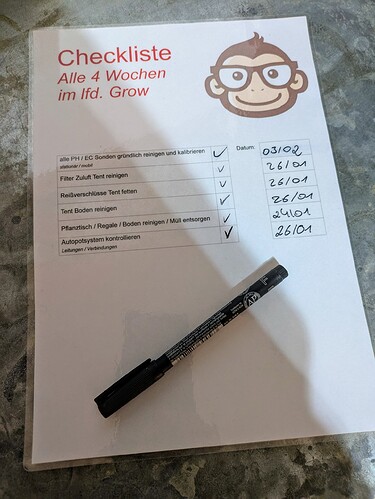 Checkliste
Alle 4 Wochen
im lfd. Grow
Datum:
alle PH / EC Sonden gründlich reinigen und kalibrieren ✓ 03/02
stationär / mobil
Filter Zuluft Tent reinigen ✓ 26/01
Reißverschlüsse Tent fetten ✓ 26/01
Tent Boden reinigen ✓ 26/01
Pflanztisch / Regale / Boden reinigen / Müll entsorgen ✓ 24/01
Autopotsystem kontrollieren ✓ 26/01
Leitungen / Verbindungen